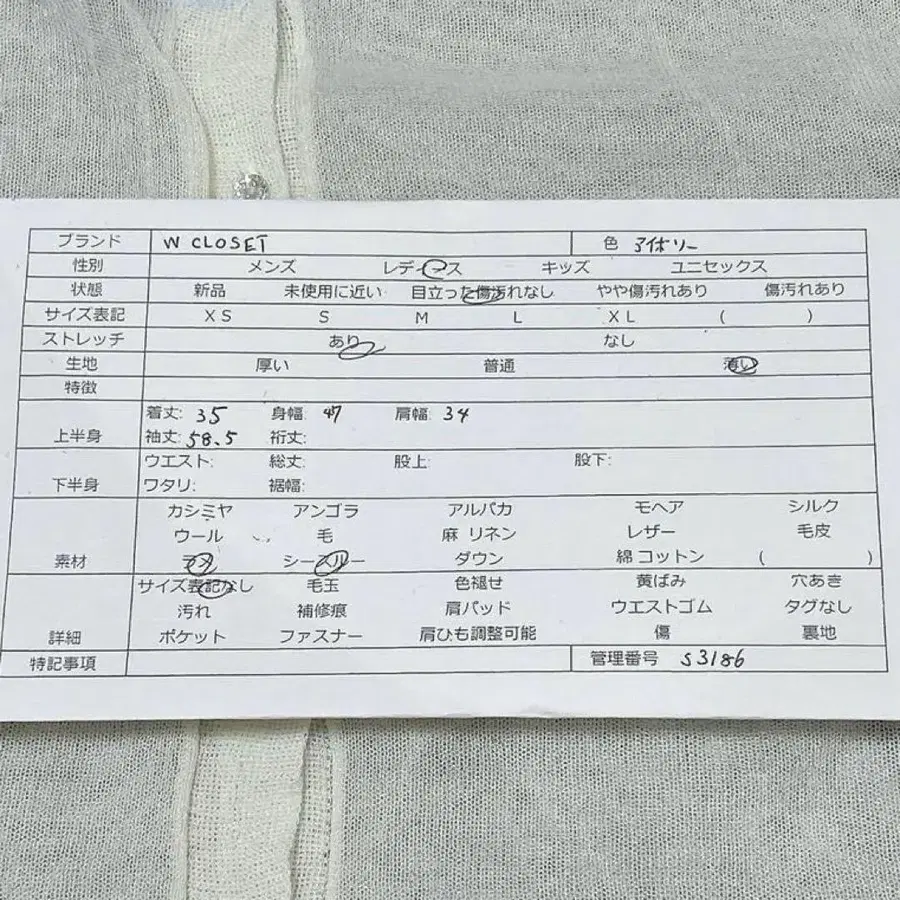 ブランド W CLOSET 色 アイボリー
性別 メンズ レディース キッズ ユニセックス
状態 新品 未使用に近い 目立った傷汚れなし やや傷汚れあり 傷汚れあり
サイズ表記 XS S M L XL ( )
ストレッチ あり なし
生地 厚い 普通 薄い
特徴
上半身 着丈: 35 身幅: 47 肩幅: 34
袖丈: 58.5 裄丈:
下半身 ウエスト: 総丈: 股上: 股下:
ワタリ: 裾幅:
素材 カシミヤ アンゴラ アルパカ モヘア シルク
ウール 毛 麻 リネン レザー 毛皮
ラメ シースルー ダウン 綿 コットン ( )
詳細 サイズ表記なし 毛玉 色褪せ 黄ばみ 穴あき
汚れ 補修痕 肩パッド ウエストゴム タグなし
ポケット ファスナー 肩ひも調整可能 傷 裏地
特記事項 管理番号 S3186